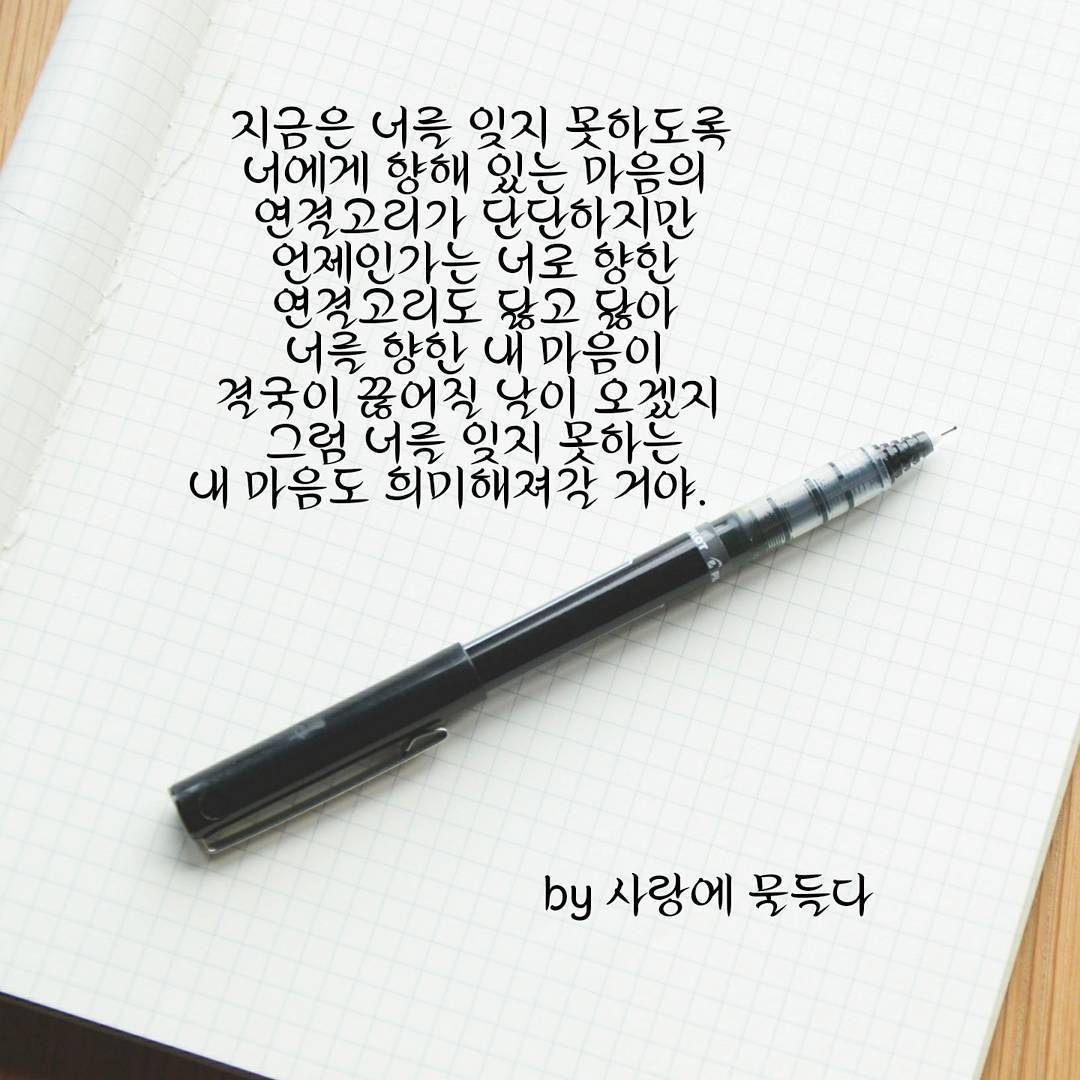 지금은 너를 잊지 못하도록
너에게 향해 있는 마음의
연결고리가 단단하지만
언제인가는 너로 향한
연결고리도 닳고 닳아
너를 향한 내 마음이
결국이 끊어질 날이 오겠지
그럼 너를 잊지 못하는
내 마음도 희미해져갈 거야.
by 사랑에 물들다